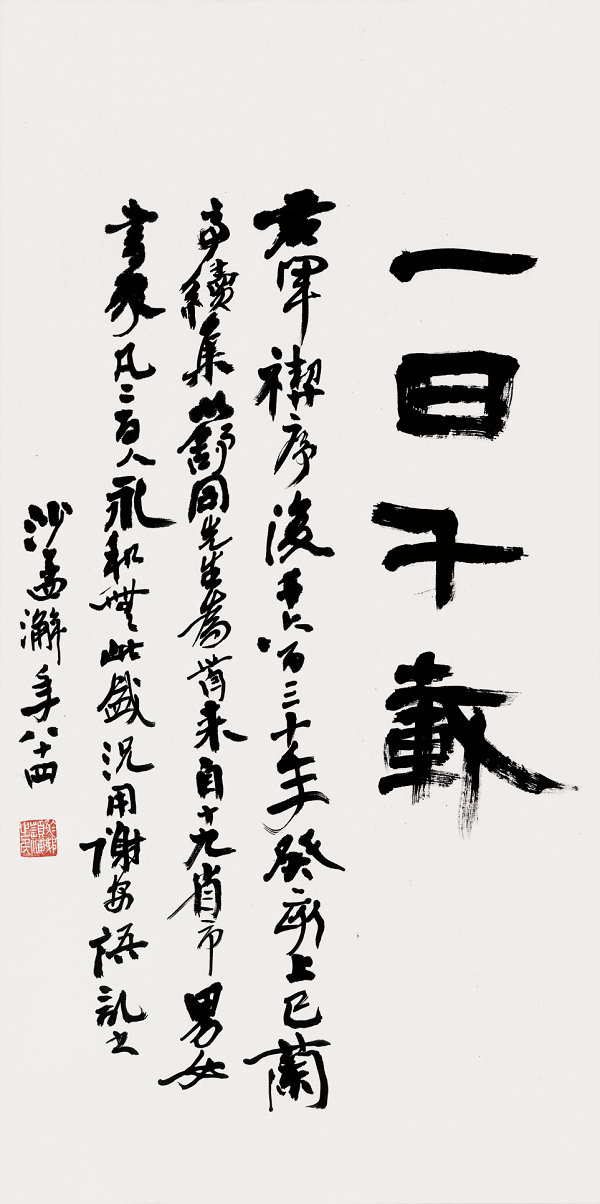 一日千載
右軍禊序後千六百三十年癸亥上巳蘭
亭續集以舒同先生為首來自十九省市男女
書家凡二百人永和無此盛況用謝安語記之
沙孟海年八十四